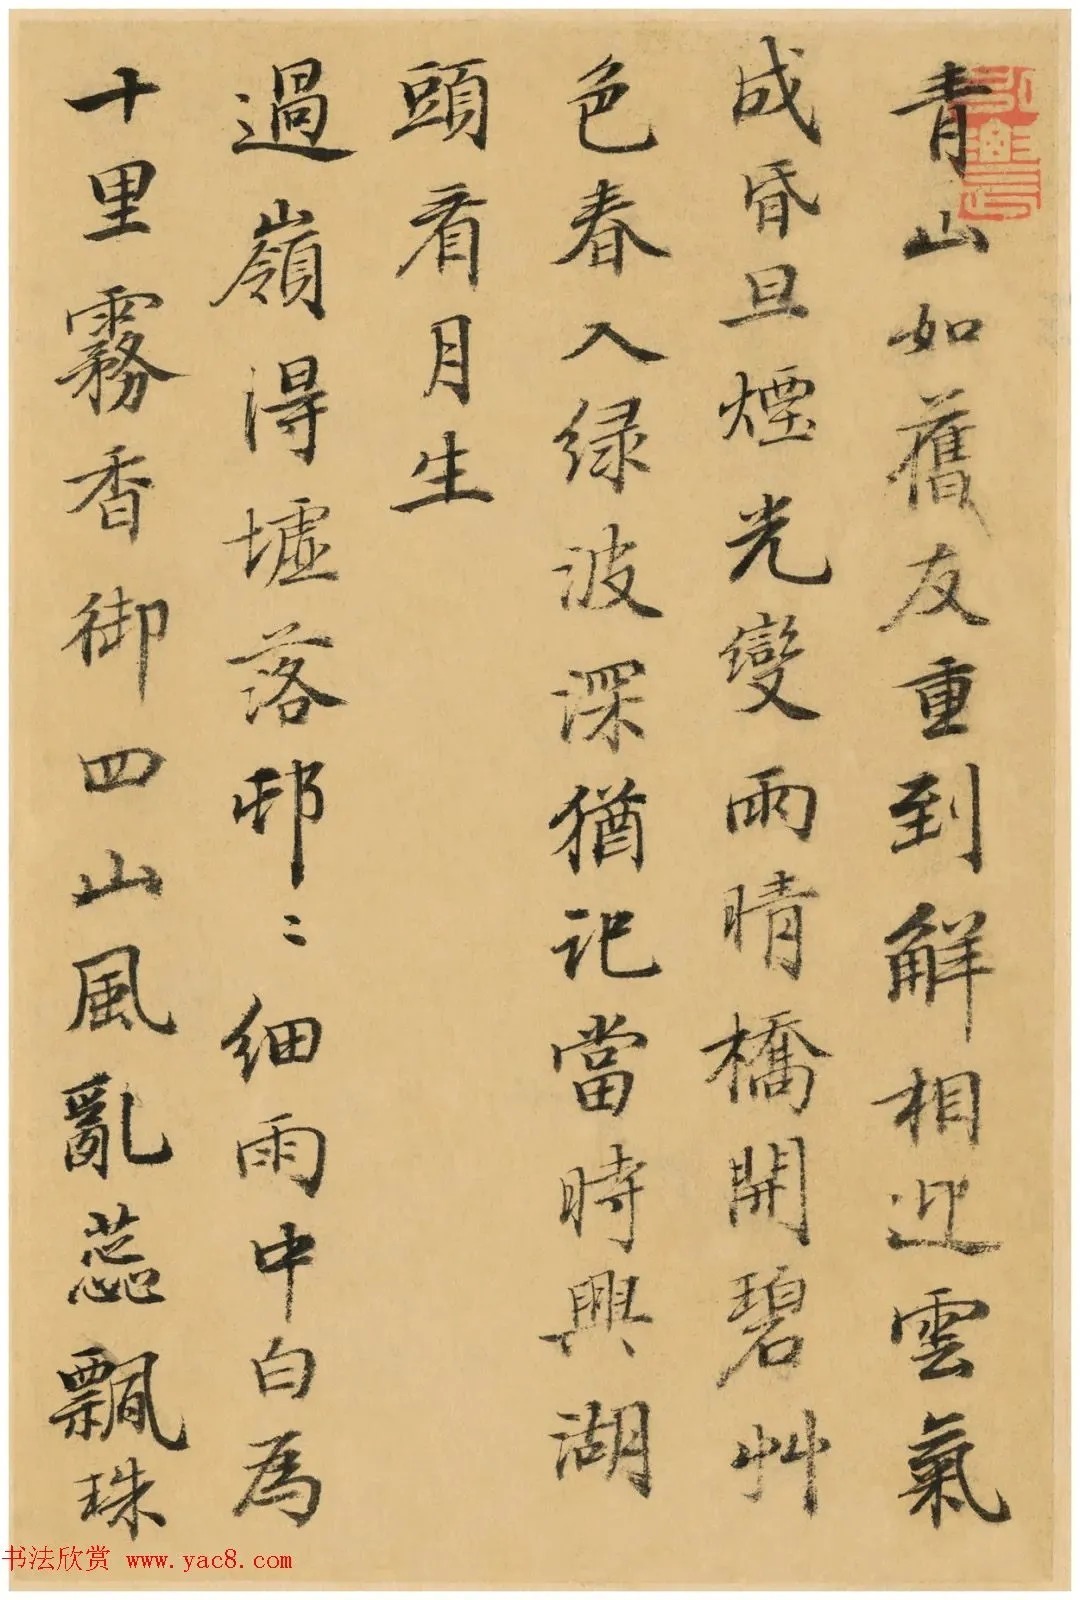 青山如舊友重到解相迎雲氣
成昏旦煙光變雨晴橋開碧艸
色春入绿波深猶记當時興湖
頭看月生
過嶺得墟落邨〻细雨中白為
十里霧香御四山風亂蕊飄珠
书法欣赏 www.yac8.com